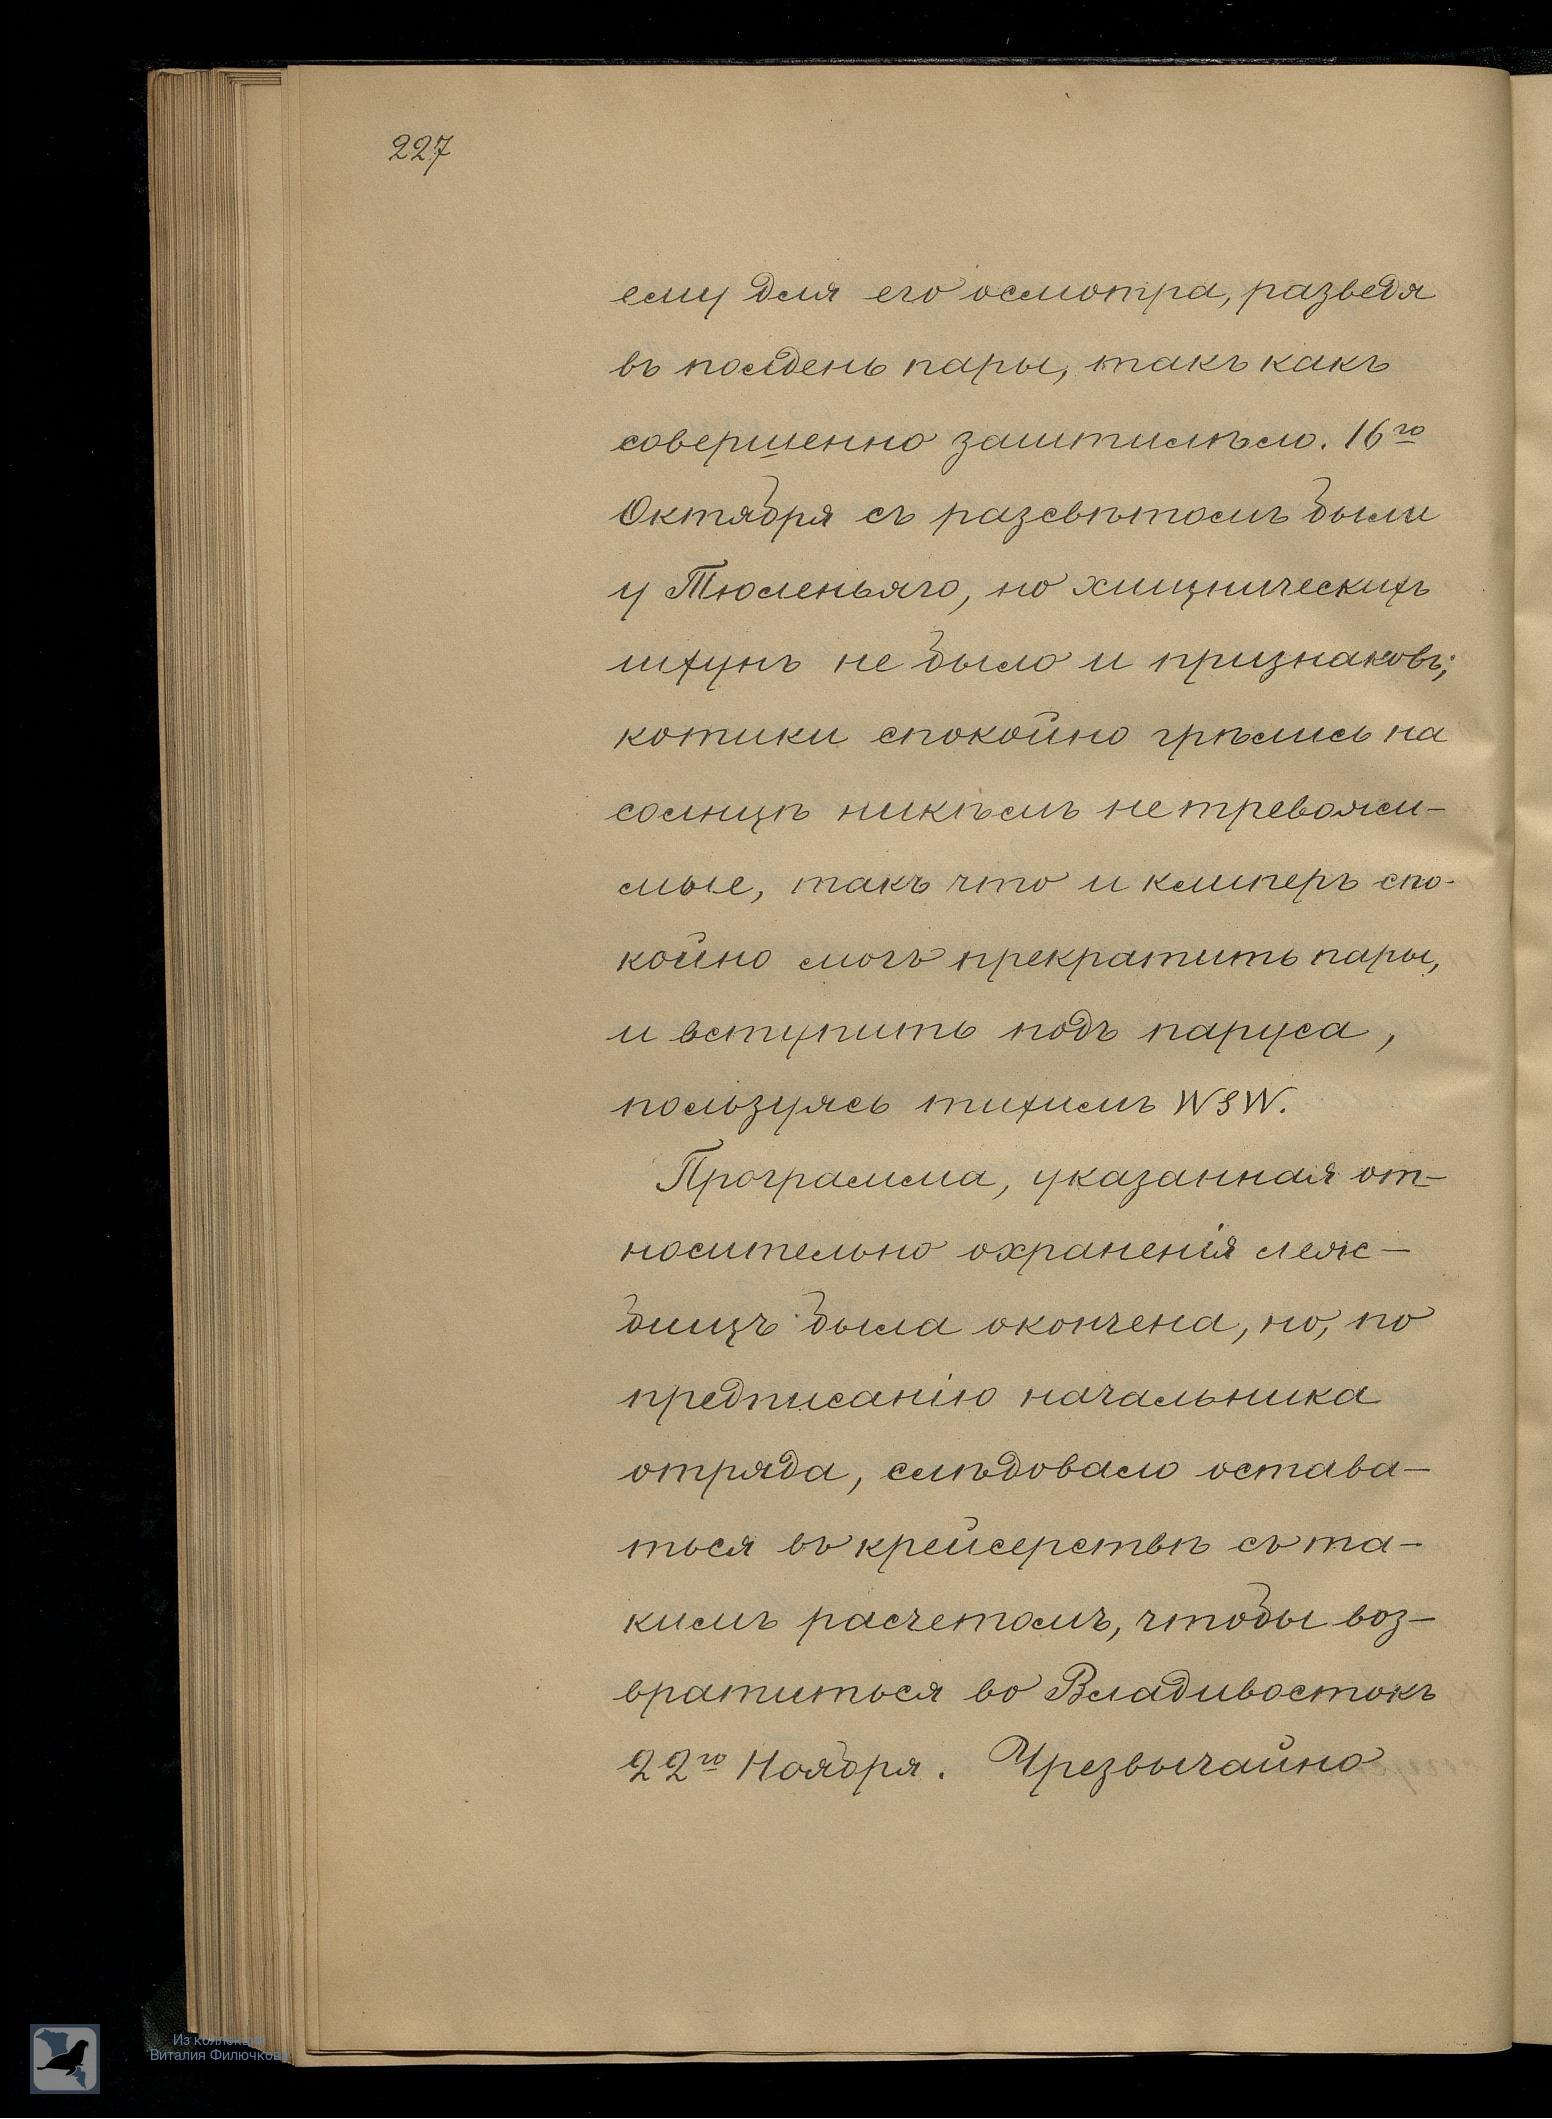 227
ему для его осмотра, разведя
въ полдень пары, такъ какъ
совершенно заштилѣло. 16го
Октября съ разсвѣтомъ были
у Тюленьяго, но хищническихъ
шхунъ не было и признаковъ;
котики спокойно грѣлись на
солнцѣ никѣмъ не тревожи-
мые, такъ что и клиперъ спо-
койно могъ прекратить пары,
и вступить подъ паруса,
пользуясь тихимъ WSW.
Программа, указанная от-
носительно охраненія леж-
бищъ была окончена, но, по
предписанію начальника
отряда, слѣдовало остава-
ться въ крейсерствѣ съ та-
кимъ расчетомъ, чтобы воз-
вратиться во Владивостокъ
22го Ноября. Чрезвычайно
Из коллекции
Виталия Филючкова